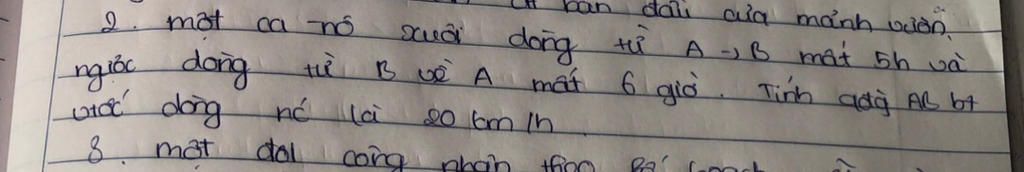 ban đầu của mảnh vườn.
2. một ca nô xuôi dòng từ A → B mất 5h và
ngược dòng từ B về A mất 6 giờ. Tính qđg AB bt
vtốc dòng nc là 20 km/h
3. một đội công nhân theo kế hoạch